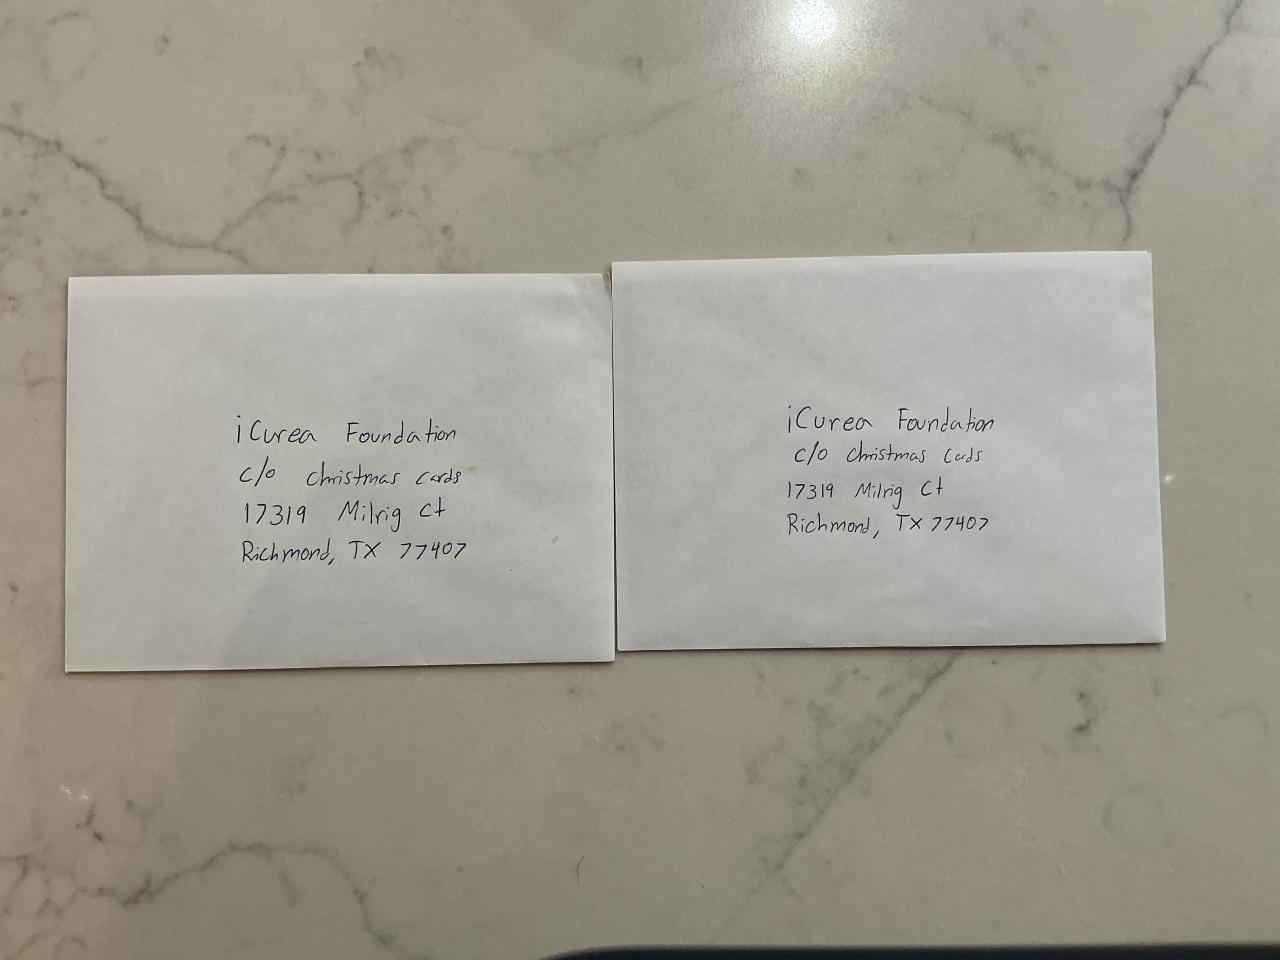 iCurea Foundation
c/o Christmas Cards
17319 Milrig Ct
Richmond, TX 77407
iCurea Foundation
c/o Christmas Cards
17319 Milrig Ct
Richmond, TX 77407